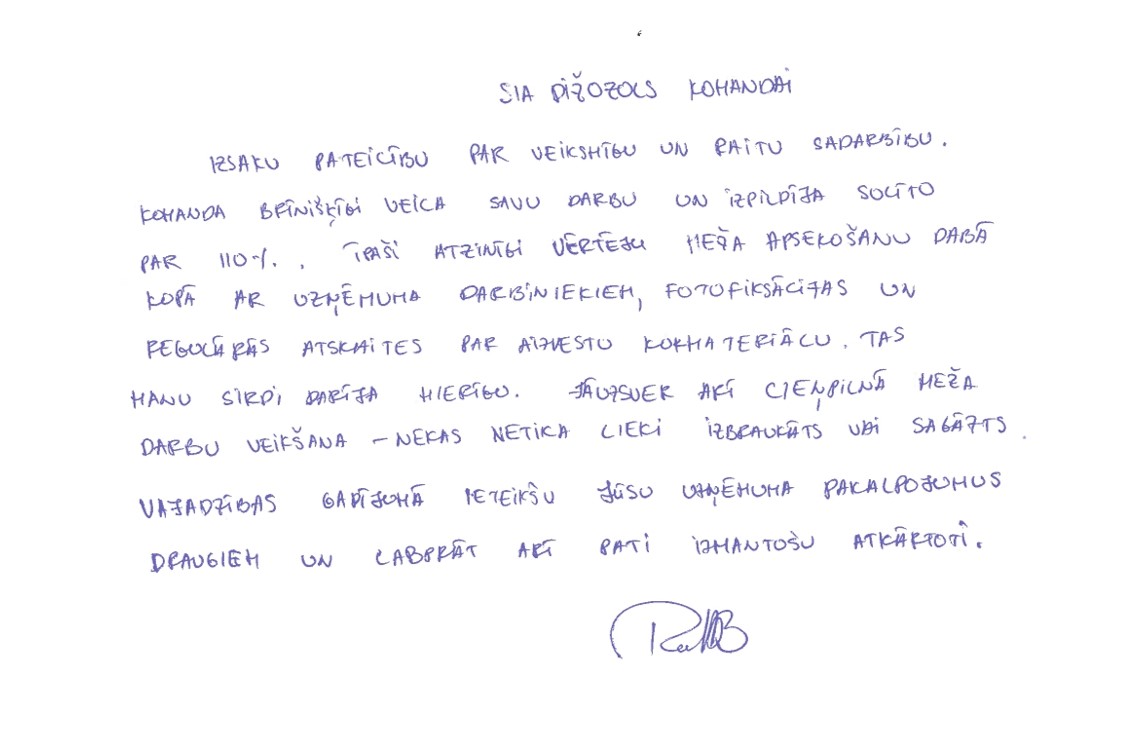 SIA DIŽOZOLS KOMANDAI
IZSAKU PATEICĪBU PAR VEIKSMĪGU UN RAITU SADARBĪBU.
KOMANDA BRĪNIŠĶĪGI VEICA SAVU DARBU UN IZPILDĪJA SOLĪTO
PAR 110%. ĪPAŠI ATZINĪGI VĒRTĒJU MEŽA APSEKOŠANU DABĀ
KOPĀ AR UZŅĒMUMA DARBINIEKIEM, FOTOFIKSĀCIJAS UN
REGULĀRĀS ATSKAITES PAR AIZVESTO KOKMATERIĀLU. TAS
MANU SIRDI DARĪJA MIERĪGU. JĀUZSVER ARĪ CIEŅPILNĀ MEŽA
DARBU VEIKŠANA – NEKAS NETIKA LIEKI IZBRAUKĀTS VAI SAGĀZTS.
VAJADZĪBAS GADĪJUMĀ IETEIKŠU JŪSU UZŅĒMUMA PAKALPOJUMUS
DRAUGIEM UN LABPRĀT ARĪ PATI IZMANTOŠU ATKĀRTOTI.